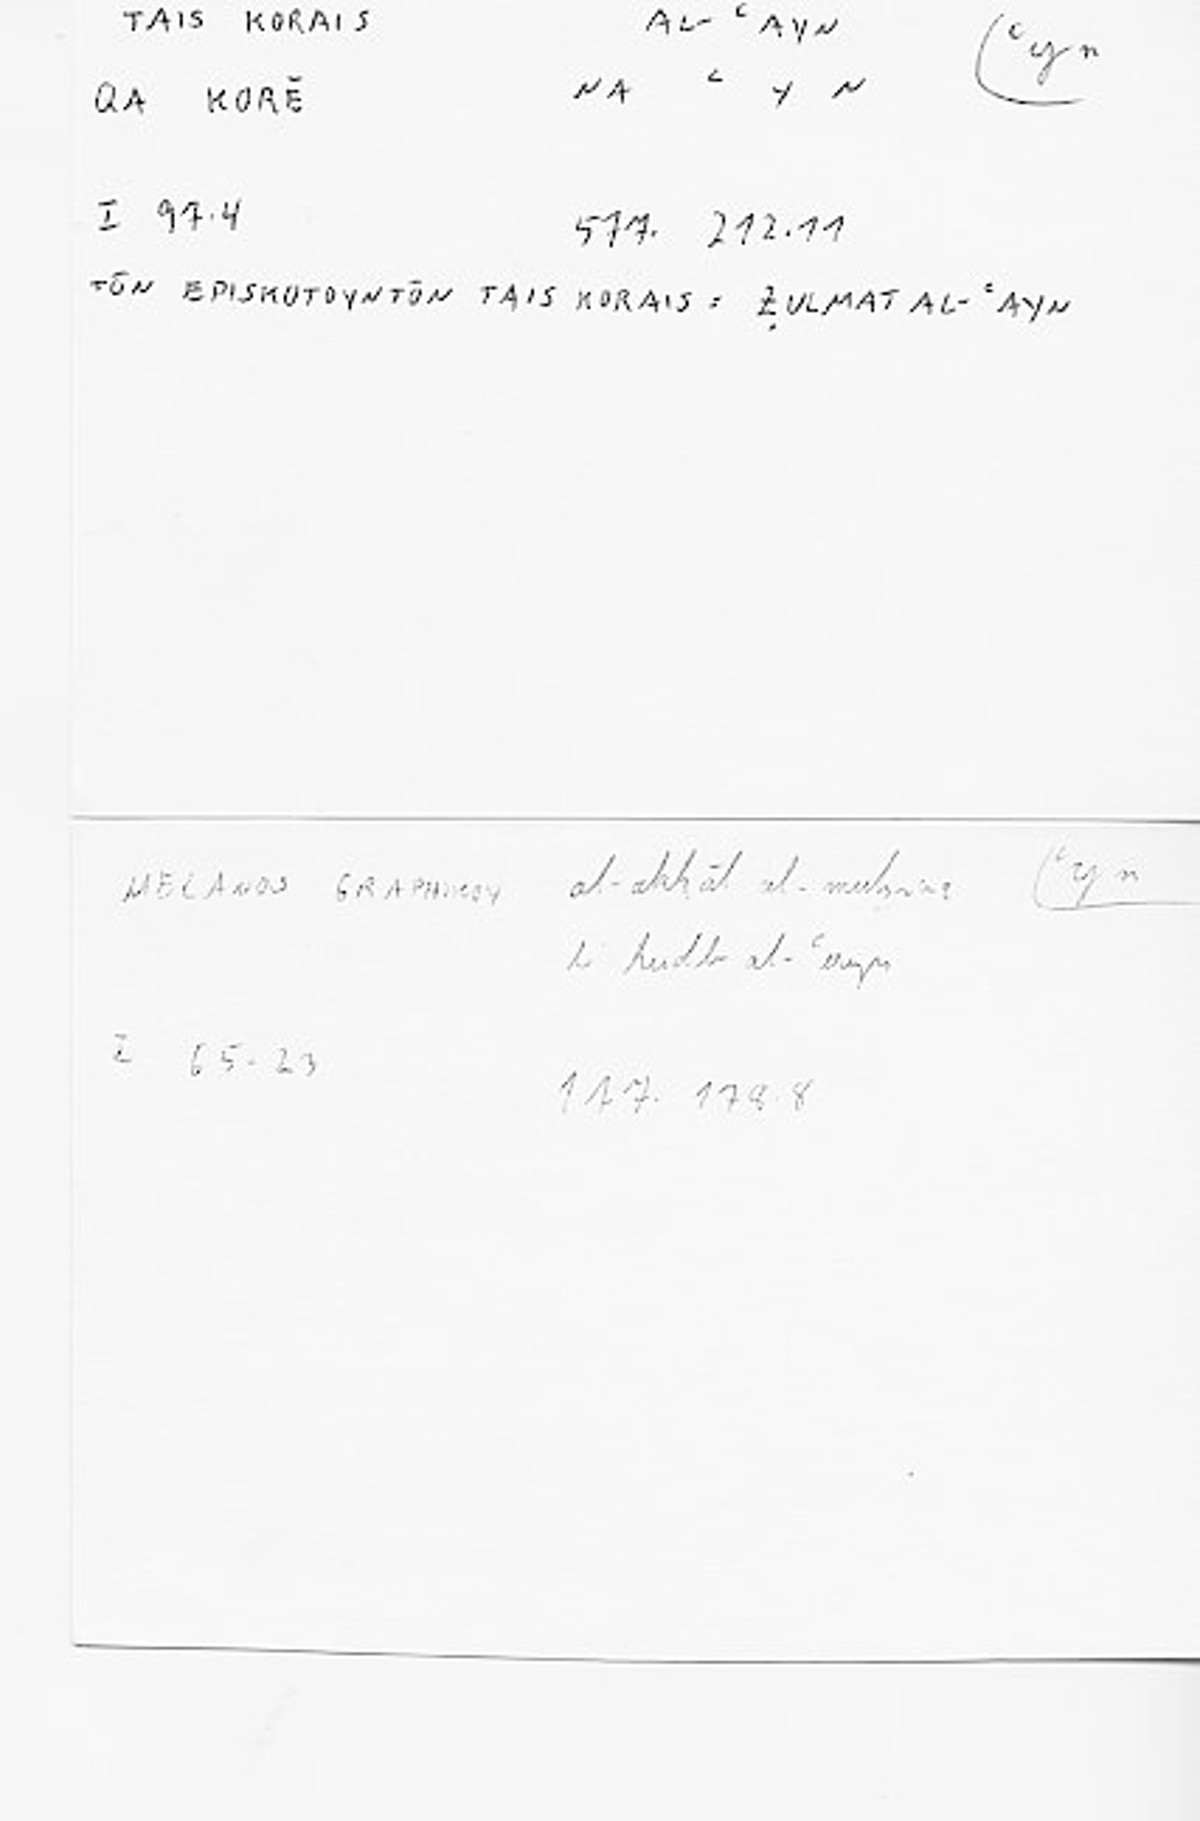 TAIS KORAIS AL-ʿAYN (ʿyn
QA KORĒ NA ʿ Y N
I 97.4 511. 212.11
TŌN EPISKOTOYNTŌN TAIS KORAIS : ẒULMAT AL-ʿAYN
MELANOS GRAPHIKOY al-akḥāl al-muḥsina (ʿyn
li hudb al-ʿayn
I 65.23 117. 178.8